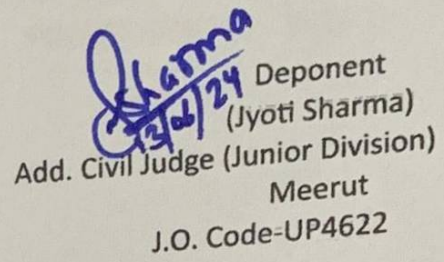 Sharma
13/06/24
Deponent
(Jyoti Sharma)
Add. Civil Judge (Junior Division)
Meerut
J.O. Code-UP4622